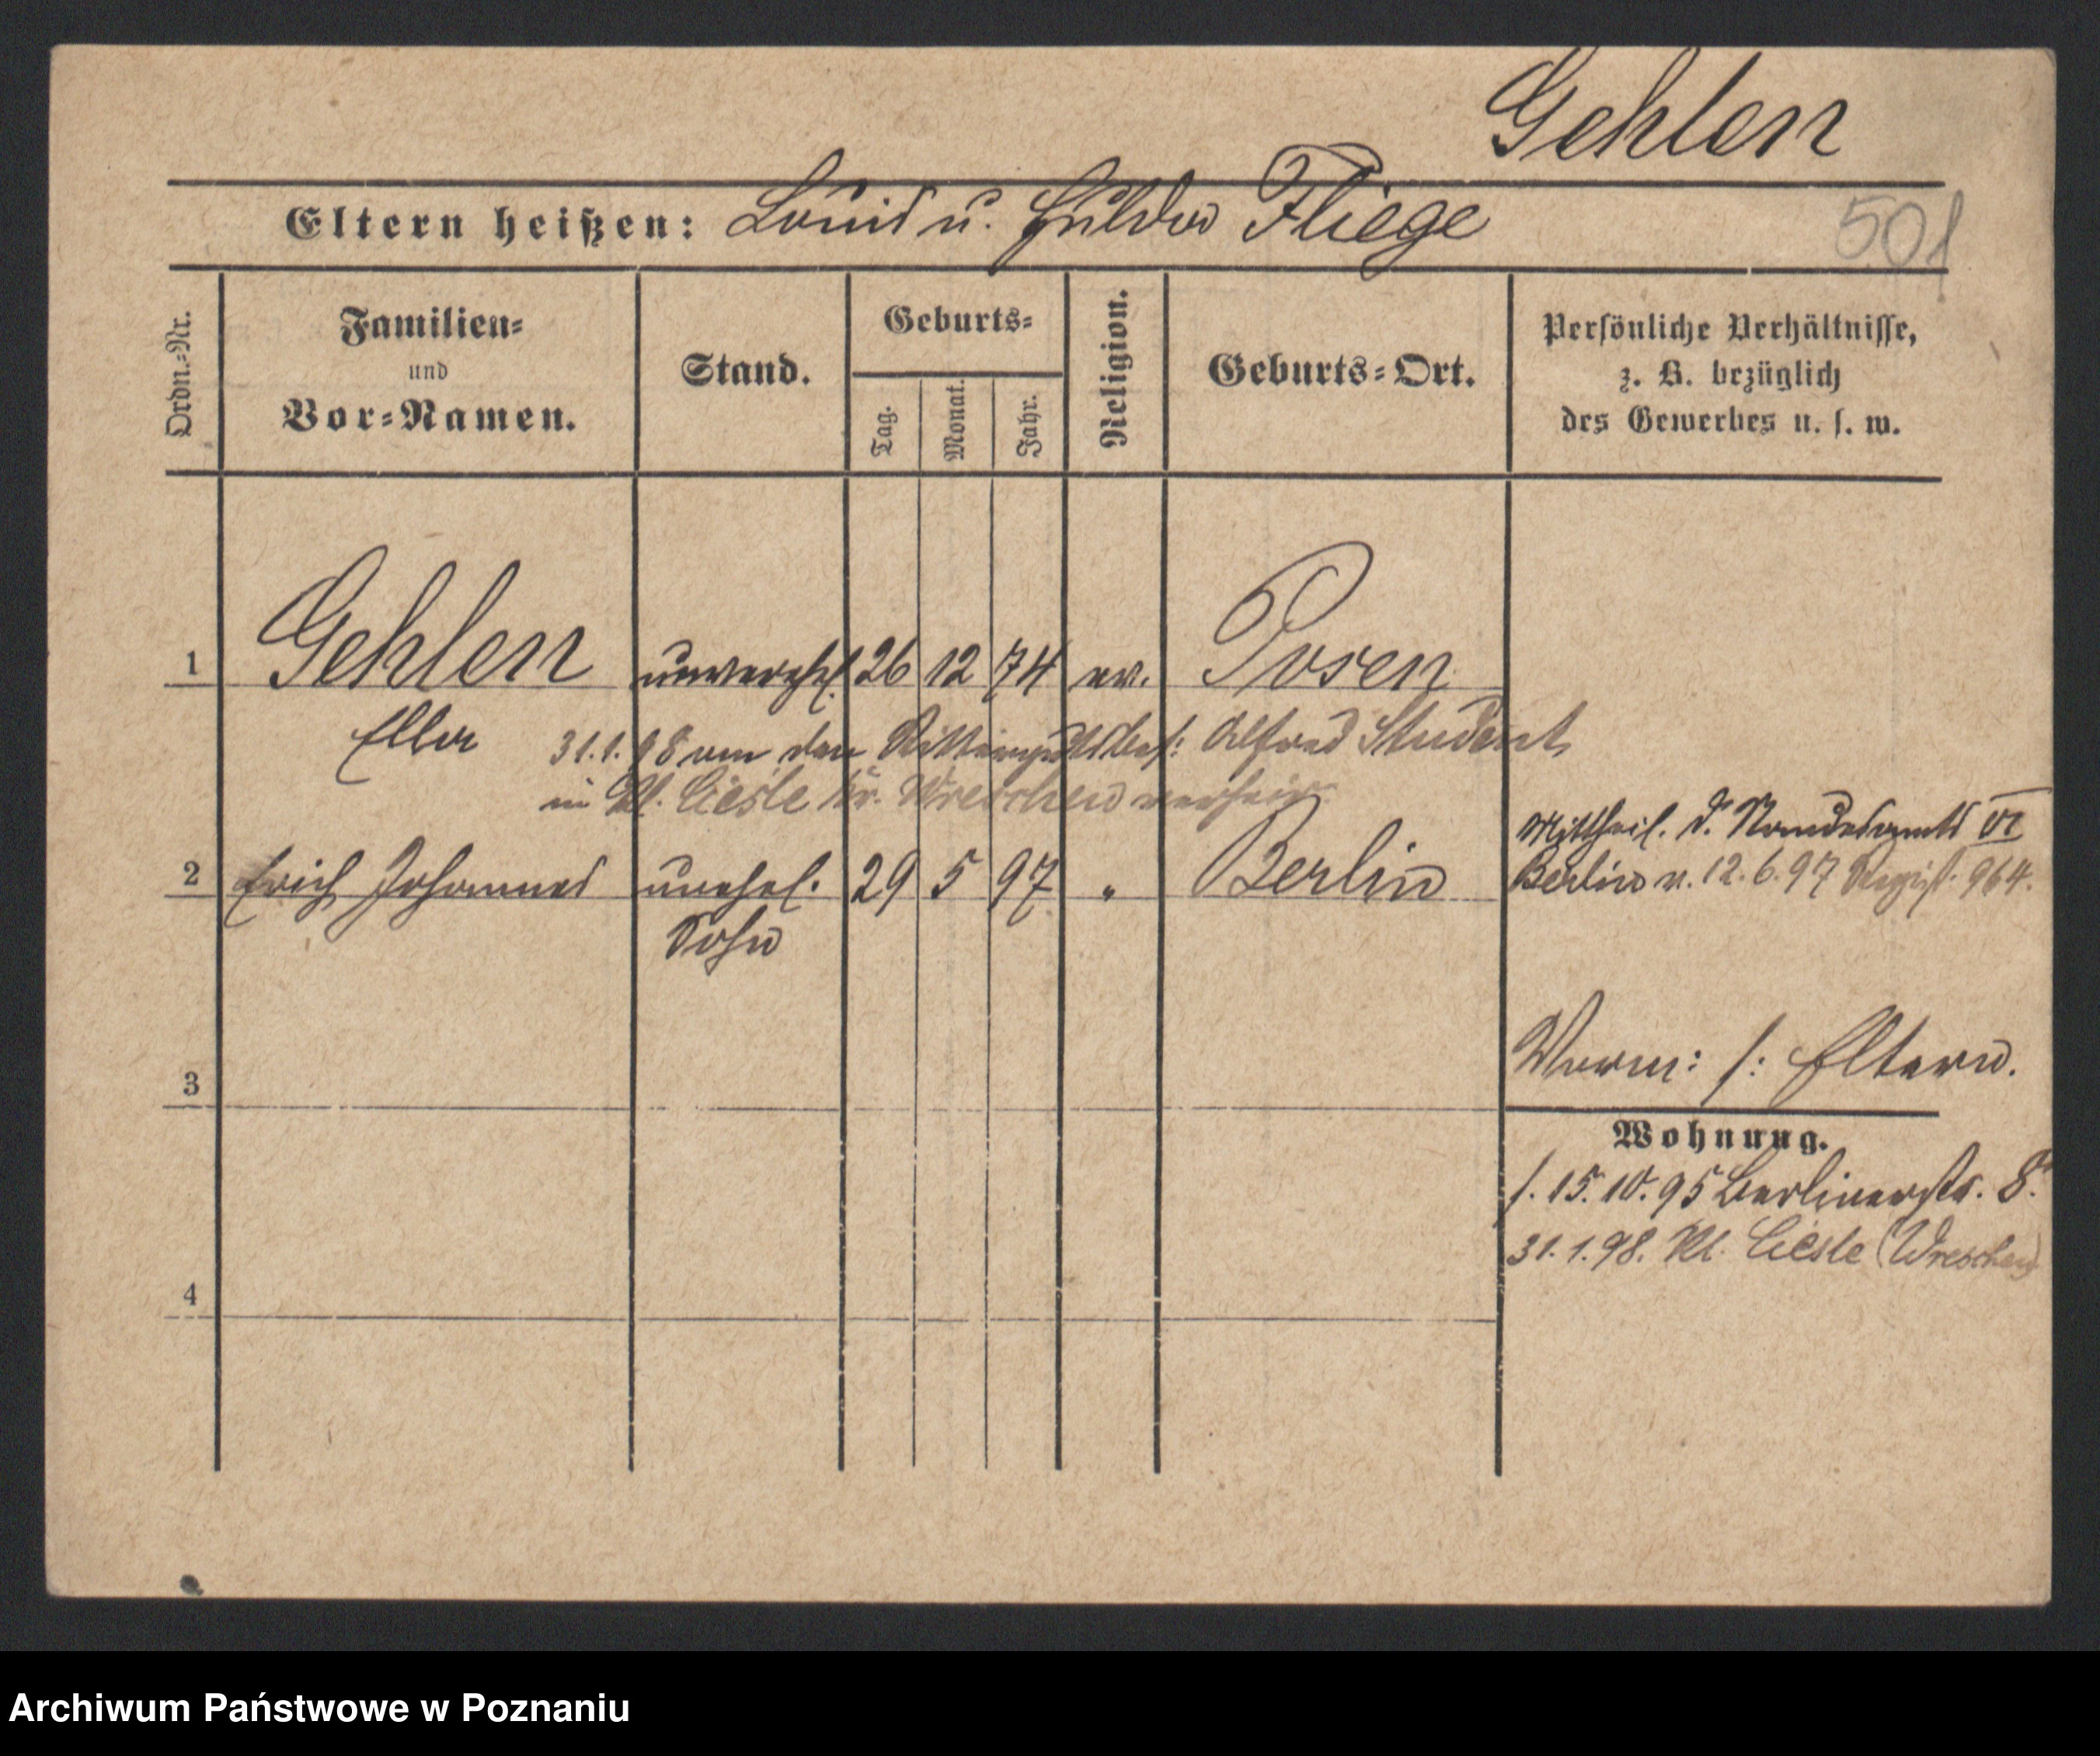 Gehlen
Eltern heißen: Louis u. Hulda Fliege
501
Ordn.-Nr.
Familien-
und
Vor-Namen.
Stand.
Geburts-
Tag.
Monat.
Jahr.
Religion.
Geburts-Ort.
Persönliche Verhältnisse,
z. B. bezüglich
des Gewerbes u. s. w.
1 Gehlen unverehel. 26 12 74 ev. Posen
Ella 31.1.98 von dem Rittergutsbes: Alfred Student
in Kl. Ciesle Kr. Wreschen verheir.
Mittheil. d. Standesamts VI
2 Erich Johannes unehel. 29 5 97 " Berlin Berlin v. 12.6.97 Regist. 964.
Sohn
Verm: s: Eltern.
3
Wohnung.
s. 15.10.95 Berlinerstr. 8.
31.1.98. Kl. Ciesle (Wreschen)
4
Archiwum Państwowe w Poznaniu